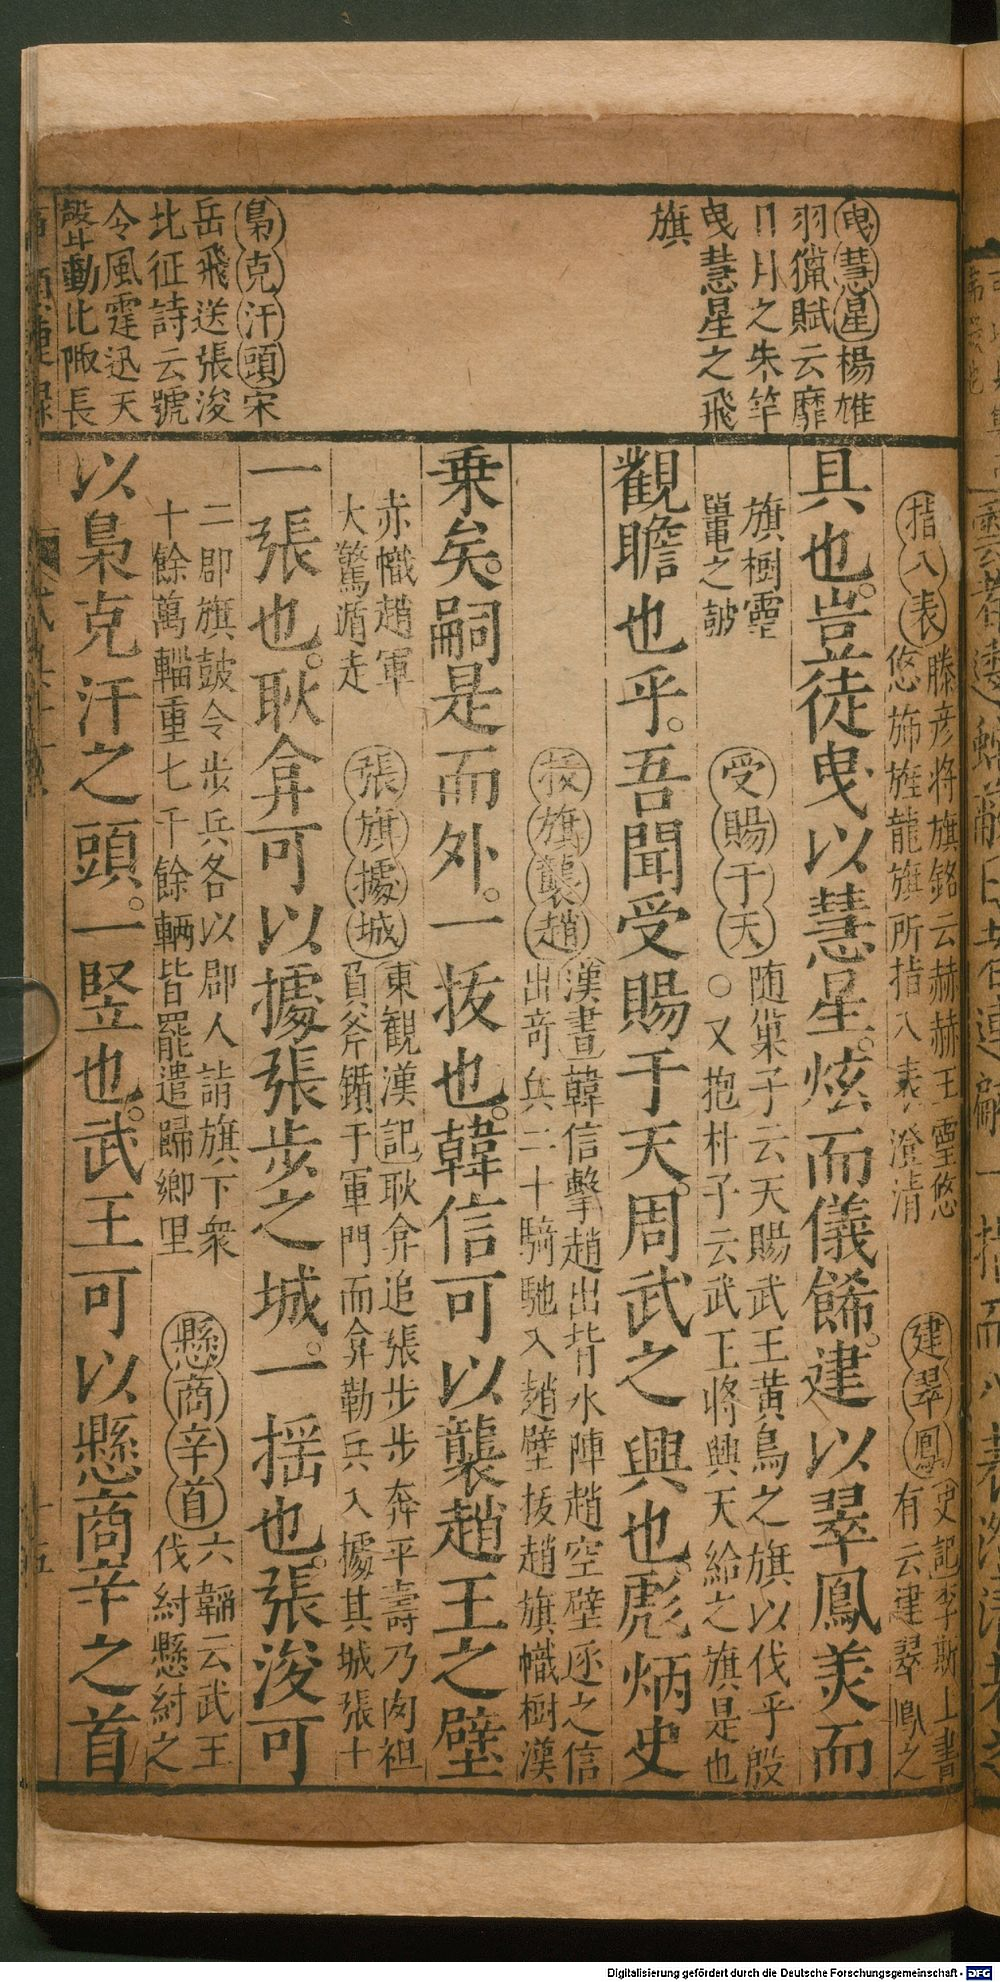 曳慧星楊雄
羽獵賦云靡
日月之朱竿
曳慧星之飛
旗
梟克汗頭宋
岳飛送張浚
北征詩云號
令風霆迅天
聲動北陬長
指八表
滕彦将旗銘云赫赫王靈悠
悠斾旌龍旗所指八表澄清
建翠鳳
史記李斯上書
有云建翠鳳之
具也。豈徒曳以慧星。炫而儀餙。建以翠鳳美而
旗樹靈
鼉之皷
受賜于天
随巢子云天賜武王黄鳥之旗以伐乎殷
○又抱朴子云武王將興天給之旗是也
觀瞻也乎。吾聞受賜于天。周武之興也。彪炳史
拔旗襲趙
漢書韓信擊趙出背水陣趙空壁逐之信
出奇兵二十騎馳入趙壁拔趙旗幟樹漢
乗矣。嗣是而外。一拔也。韓信可以襲趙王之壁
赤幟趙軍
大驚遁走
張旗據城
東觀漢記耿弇追張步步奔平壽乃肉袒
負斧鑕于軍門而弇勒兵入據其城張十
一張也。耿弇可以據張步之城。一揺也。張浚可
二郡旗皷令步兵各以郡人詣旗下衆
十餘萬輜重七千餘輛皆罷遣歸鄉里
懸商辛首
六韜云武王
伐紂懸紂之
以梟克汗之頭。一竪也。武王可以懸商辛之首
十五
Digitalisierung gefördert durch die Deutsche Forschungsgemeinschaft - DFG